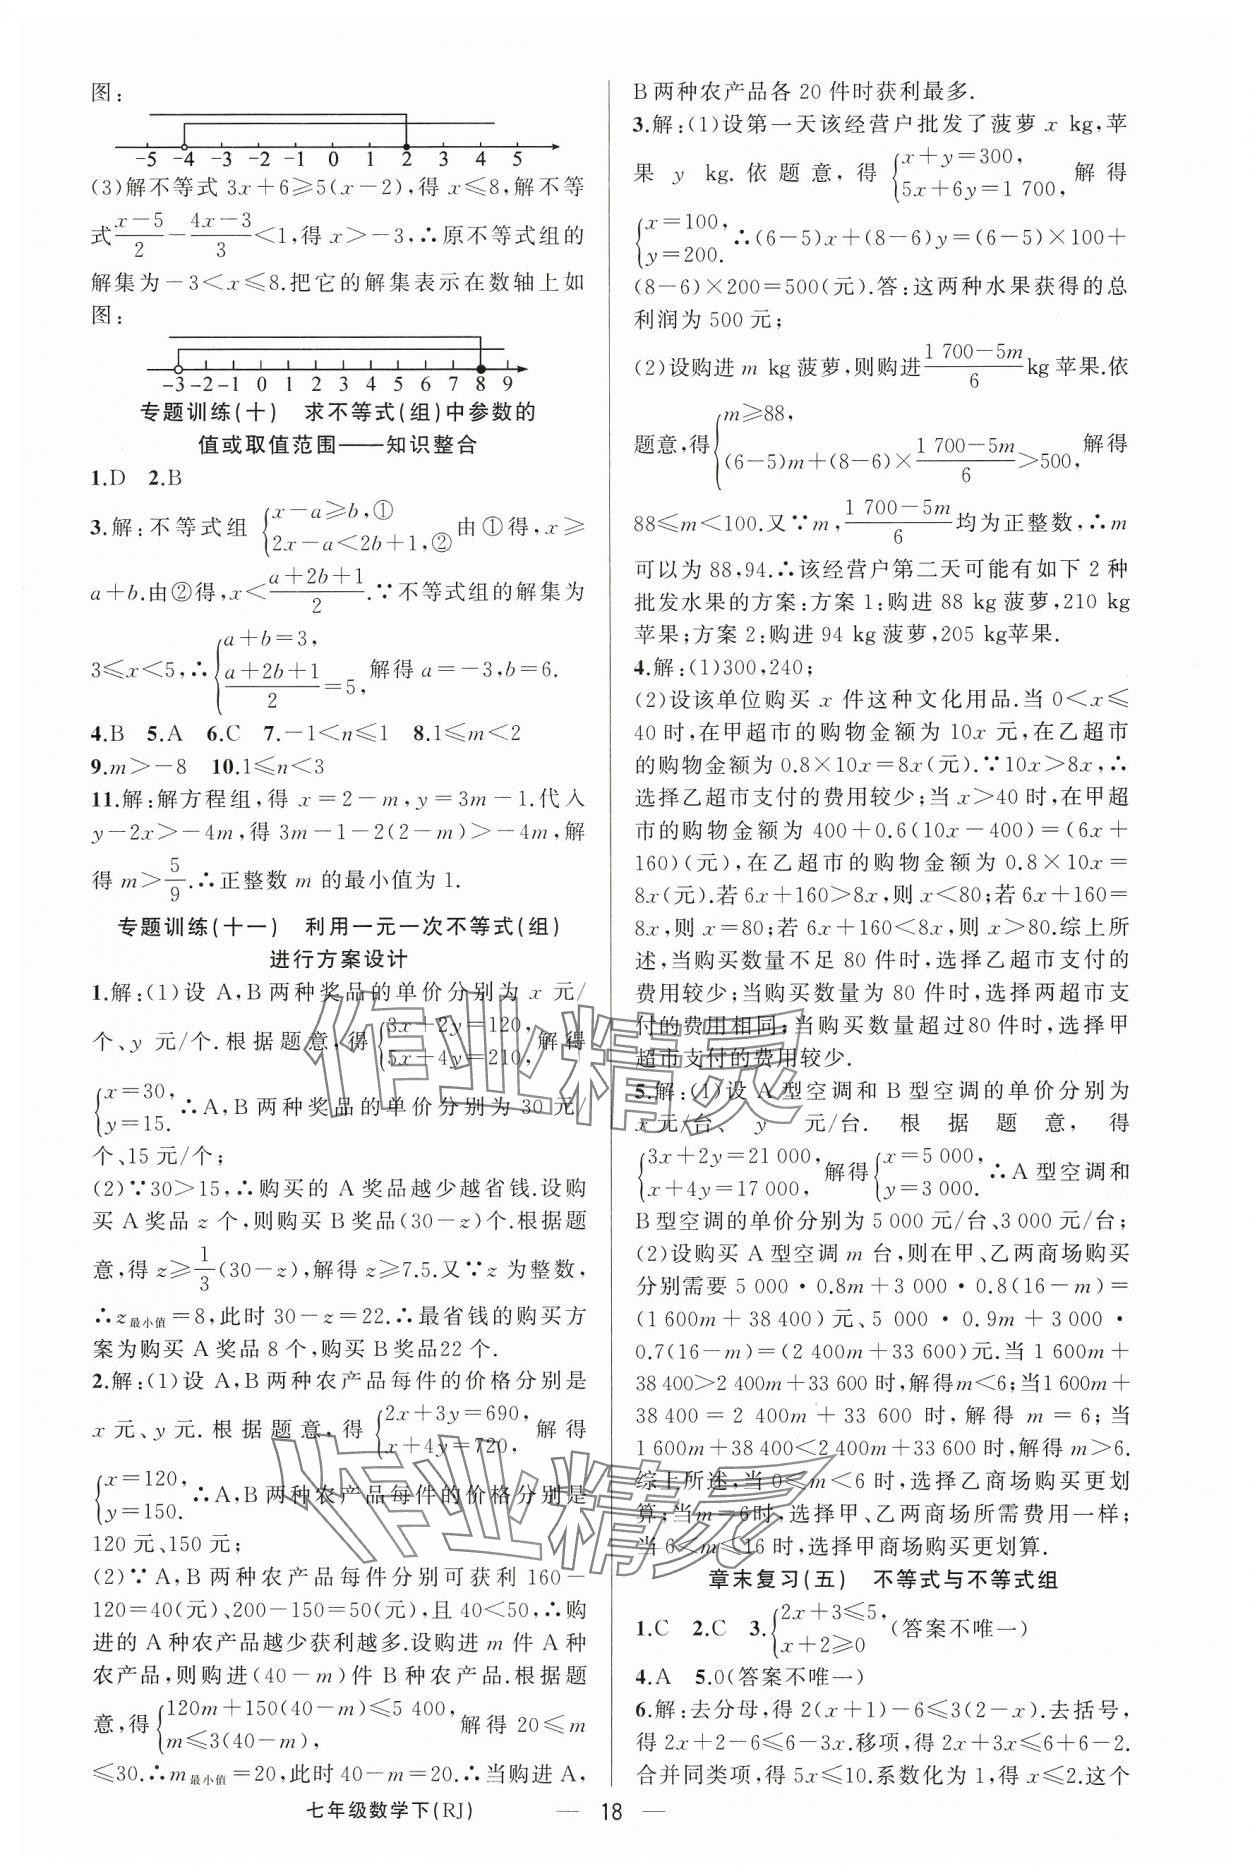 图:
-5 -4 -3 -2 -1 0 1 2 3 4 5
(3)解不等式 3x+6≥5(x-2),得 x≤8,解不等
式(x-5)/2-(4x-3)/3<1,得 x>-3,∴原不等式组的
解集为-3<x≤8.把它的解集表示在数轴上如
图:
-3 -2 -1 0 1 2 3 4 5 6 7 8 9
专题训练(十) 求不等式(组)中参数的
值或取值范围——知识整合
1.D 2.B
3.解:不等式组{x-a≥b,① 2x-a<2b+1,② 由①得,x≥
a+b.由②得,x<(a+2b+1)/2.∵不等式组的解集为
3≤x<5,∴{a+b=3, (a+2b+1)/2=5, 解得 a=-3,b=6.
4.B 5.A 6.C 7.-1<n≤1 8.1≤m<2
9.m>-8 10.1≤n<3
11.解:解方程组,得 x=2-m,y=3m-1.代入
y-2x>-4m,得 3m-1-2(2-m)>-4m,解
得 m>5/9.∴正整数 m 的最小值为 1.
专题训练(十一) 利用一元一次不等式(组)
进行方案设计
1.解:(1)设 A,B两种奖品的单价分别为 x 元/
个、y 元/个.根据题意,得{3x+2y=120, 5x+4y=210, 解得
{x=30, y=15. ∴A,B两种奖品的单价分别为 30 元/
个、15 元/个;
(2)∵30>15,∴购买的 A 奖品越少越省钱.设购
买 A 奖品 z 个,则购买 B 奖品(30-z)个.根据题
意,得 z≥1/3(30-z),解得 z≥7.5.又∵z 为整数,
∴z最小值=8,此时 30-z=22.∴最省钱的购买方
案为购买 A 奖品 8 个,购买 B奖品22 个.
2.解:(1)设 A,B两种农产品每件的价格分别是
x 元、y 元.根据题意,得{2x+3y=690, x+4y=720, 解得
{x=120, y=150. ∴A,B两种农产品每件的价格分别是
120 元、150 元;
(2)∵A,B两种农产品每件分别可获利 160-
120=40(元)、200-150=50(元),且 40<50,∴购
进的 A 种农产品越少获利越多.设购进 m 件 A 种
农产品,则购进(40-m)件 B 种农产品.根据题
意,得{120m+150(40-m)≤5 400, m≤3(40-m), 解得 20≤m
≤30.∴m最小值=20,此时 40-m=20.∴当购进 A,
B 两种农产品各 20 件时获利最多.
3.解:(1)设第一天该经营户批发了菠萝 x kg,苹
果 y kg.依题意,得{x+y=300, 5x+6y=1 700, 解得
{x=100, y=200. ∴(6-5)x+(8-6)y=(6-5)×100+
(8-6)×200=500(元).答:这两种水果获得的总
利润为 500 元;
(2)设购进 m kg 菠萝,则购进(1 700-5m)/6 kg苹果.依
题意,得{m≥88, (6-5)m+(8-6)×(1 700-5m)/6>500, 解得
88≤m<100.又∵m,(1 700-5m)/6均为正整数,∴m
可以为 88,94.∴该经营户第二天可能有如下 2 种
批发水果的方案:方案 1:购进 88 kg 菠萝,210 kg
苹果;方案 2:购进 94 kg 菠萝,205 kg苹果.
4.解:(1)300,240;
(2)设该单位购买 x 件这种文化用品.当 0<x≤
40 时,在甲超市的购物金额为 10x 元,在乙超市
的购物金额为 0.8×10x=8x(元).∵10x>8x,∴
选择乙超市支付的费用较少;当 x>40 时,在甲超
市的购物金额为 400+0.6(10x-400)=(6x+
160)(元),在乙超市的购物金额为 0.8×10x=
8x(元).若 6x+160>8x,则 x<80;若 6x+160=
8x,则 x=80;若 6x+160<8x,则 x>80.综上所
述,当购买数量不足 80 件时,选择乙超市支付的
费用较少;当购买数量为 80 件时,选择两超市支
付的费用相同;当购买数量超过80 件时,选择甲
超市支付的费用较少.
5.解:(1)设 A 型空调和 B 型空调的单价分别为
x 元/台、y 元/台.根据题意,得
{3x+2y=21 000, x+4y=17 000, 解得{x=5 000, y=3 000. ∴A 型空调和
B 型空调的单价分别为 5 000 元/台、3 000 元/台;
(2)设购买 A 型空调 m 台,则在甲、乙两商场购买
分别需要 5 000·0.8m+3 000·0.8(16-m)=
(1 600m+38 400)元、5 000·0.9m+3 000·
0.7(16-m)=(2 400m+33 600)元.当 1 600m+
38 400>2 400m+33 600 时,解得m<6;当1 600m+
38 400=2 400m+33 600 时,解得 m=6;当
1 600m+38 400<2 400m+33 600 时,解得 m>6.
综上所述,当 0≤m<6 时,选择乙商场购买更划
算;当 m=6时,选择甲、乙两商场所需费用一样;
当 6<m≤16 时,选择甲商场购买更划算.
章末复习(五) 不等式与不等式组
1.C 2.C 3.{2x+3≤5, x+2≥0 (答案不唯一)
4.A 5.0(答案不唯一)
6.解:去分母,得 2(x+1)-6≤3(2-x).去括号,
得 2x+2-6≤6-3x.移项,得 2x+3x≤6+6-2.
合并同类项,得 5x≤10.系数化为 1,得 x≤2.这个
七年级数学下(RJ) — 18 —
作业精灵
作业精灵